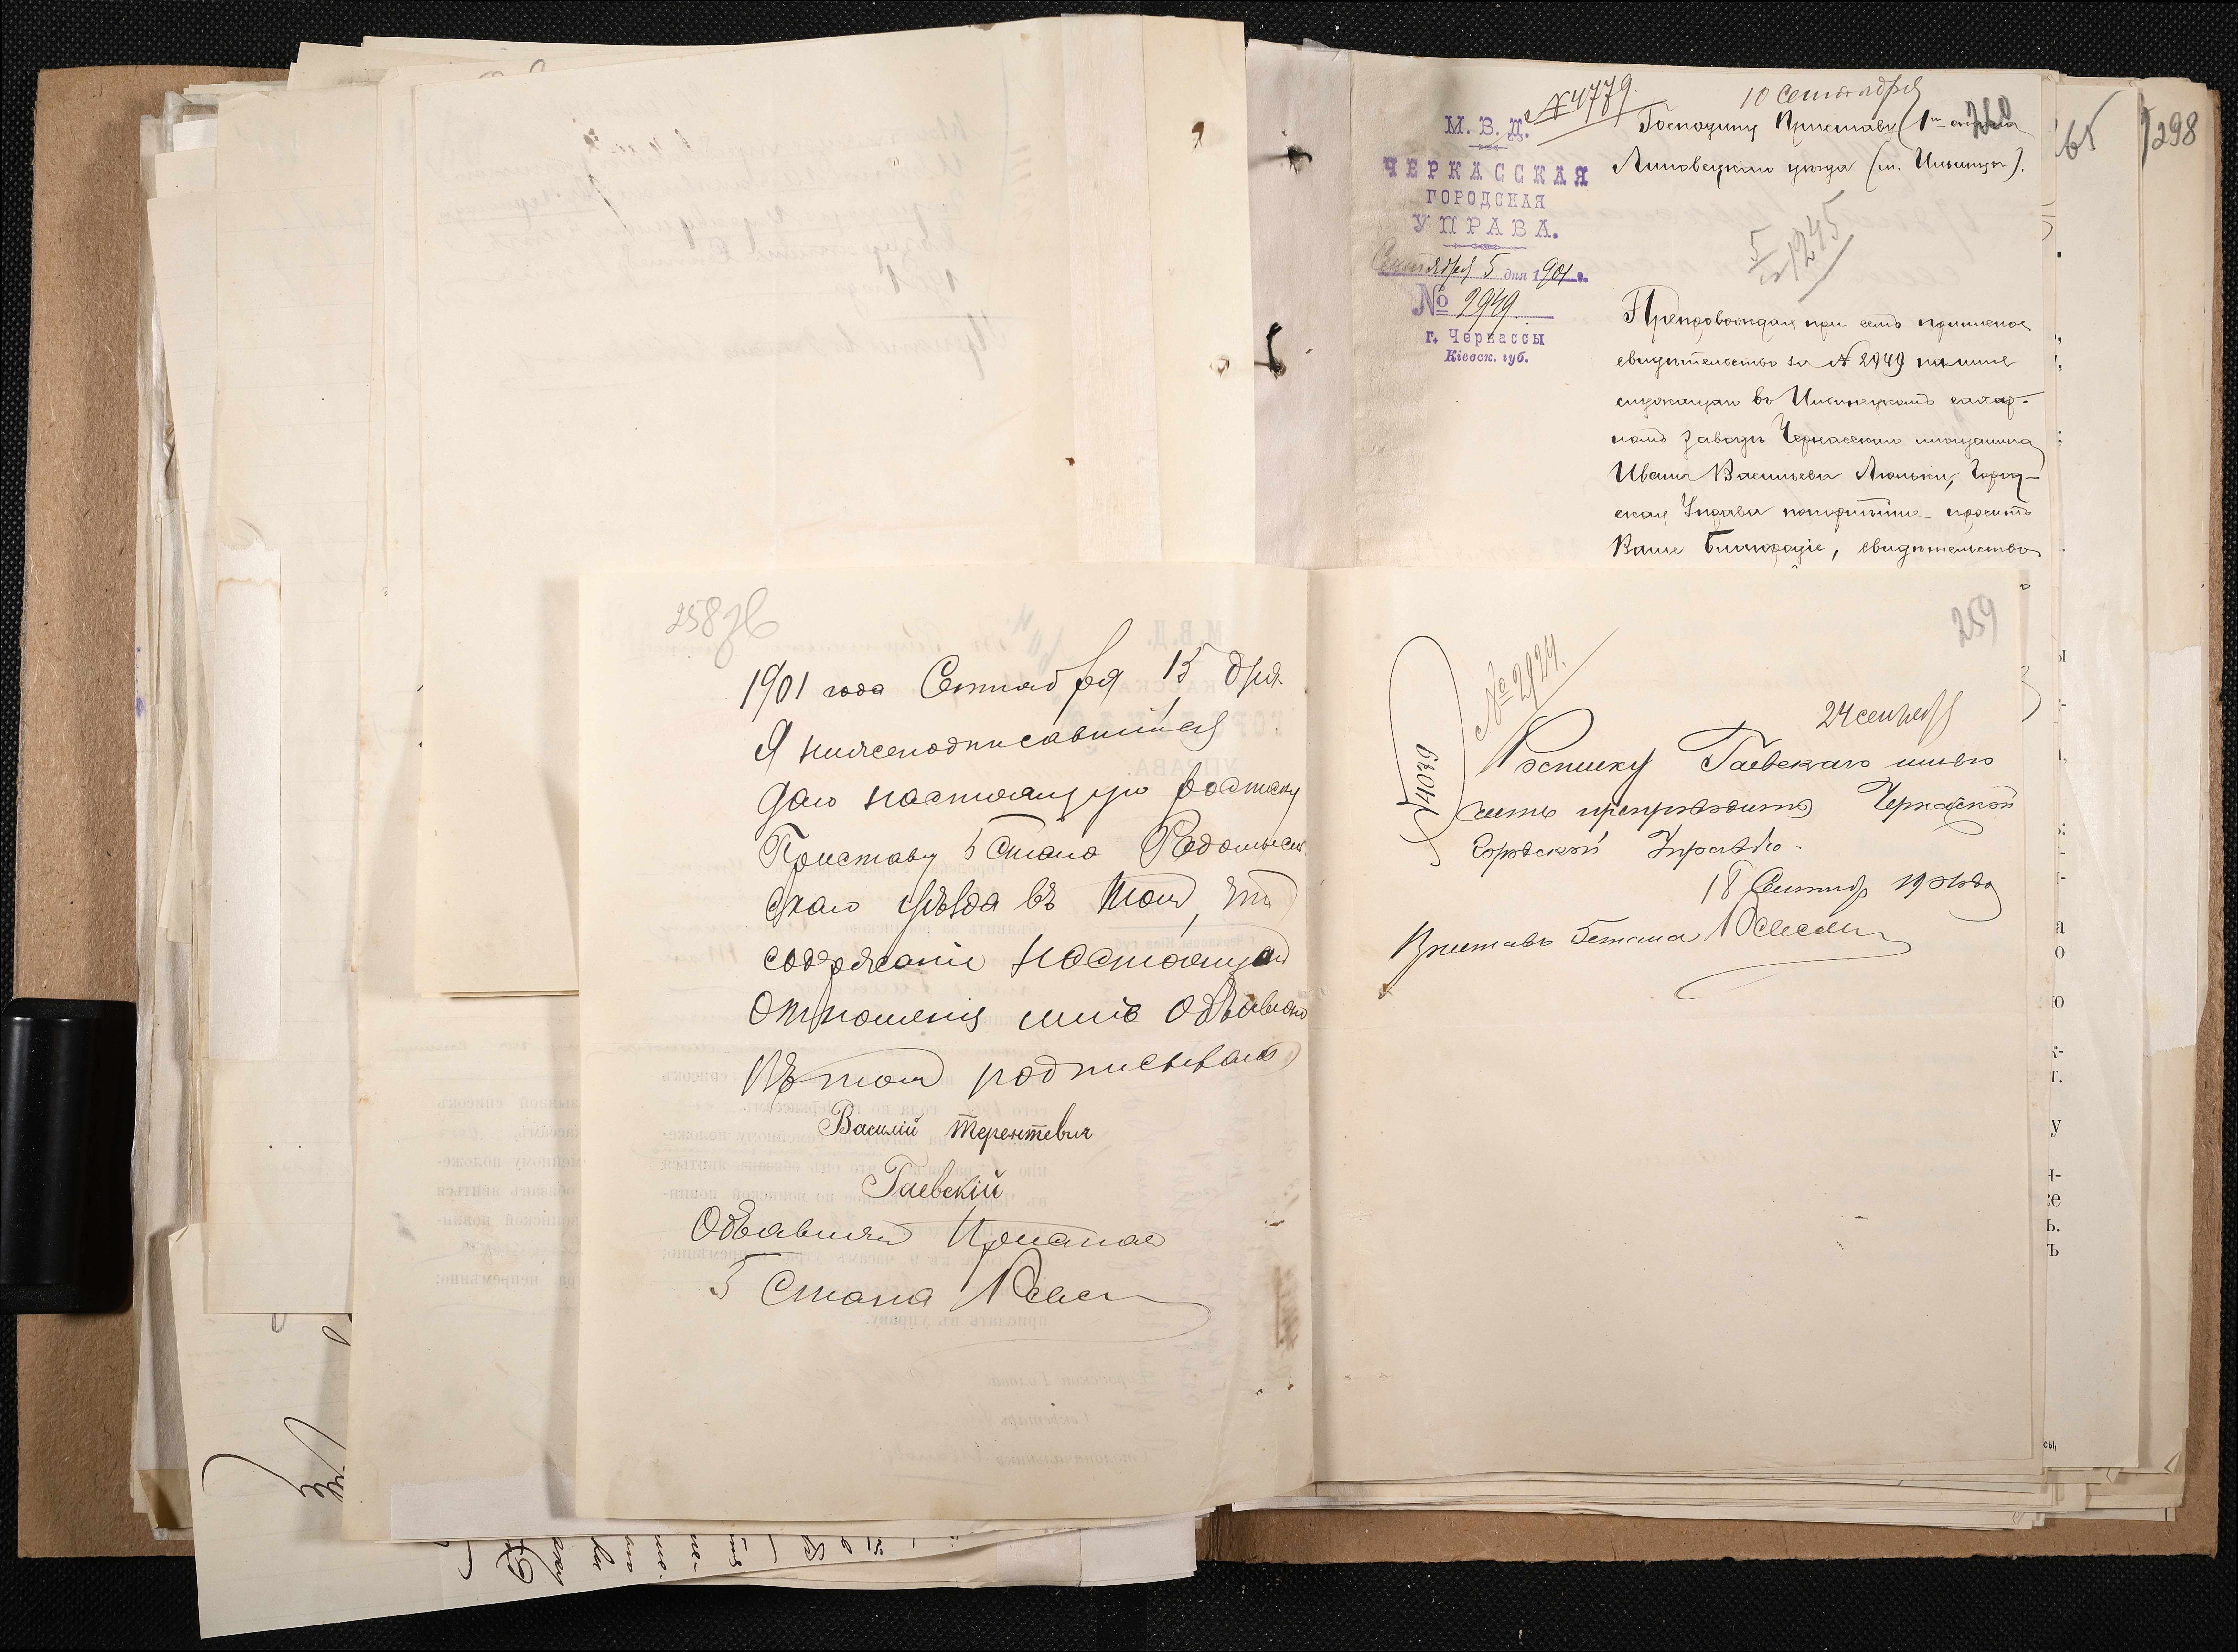 № 4779.
10 Сентября
М. В. Д.
ЧЕРКАССКАЯ
ГОРОДСКАЯ
УПРАВА.
Сентября 5 дня 1901 г.
№ 2949.
г. Черкассы
Кіевск. губ.
Господину Приставу 1го стана
Липовецкаго уѣзда (м. Ильинцы).
65
298
5
1245
Препровождая при семъ приписное
свидѣтельство за № 2949 на имя
служащаго въ Ильинецкомъ сахар-
номъ заводѣ Черкасскаго мѣщанина
Ивана Васильева Люльки, Город-
ская Управа покорнѣйше проситъ
Ваше Благородіе, свидѣтельство
258
1901 года Сентября 15 дня
Я нижеподписавшійся
даю настоящую росписку
Приставу 5 Стана Радомысль
скаго уѣзда въ томъ, что
содержаніе настоящаго
отношенія мнѣ объявлено
въ томъ подписываюсь
Василій Терентевич
Гаевскій
Объявилъ Приставъ
5 Стана
259
№ 2924.
24 сентября
Росписку Гаевскаго имѣю
честь препроводить Черкасской
Городской Управѣ.
18 Сентяб 1901 года
Приставъ 5 стана